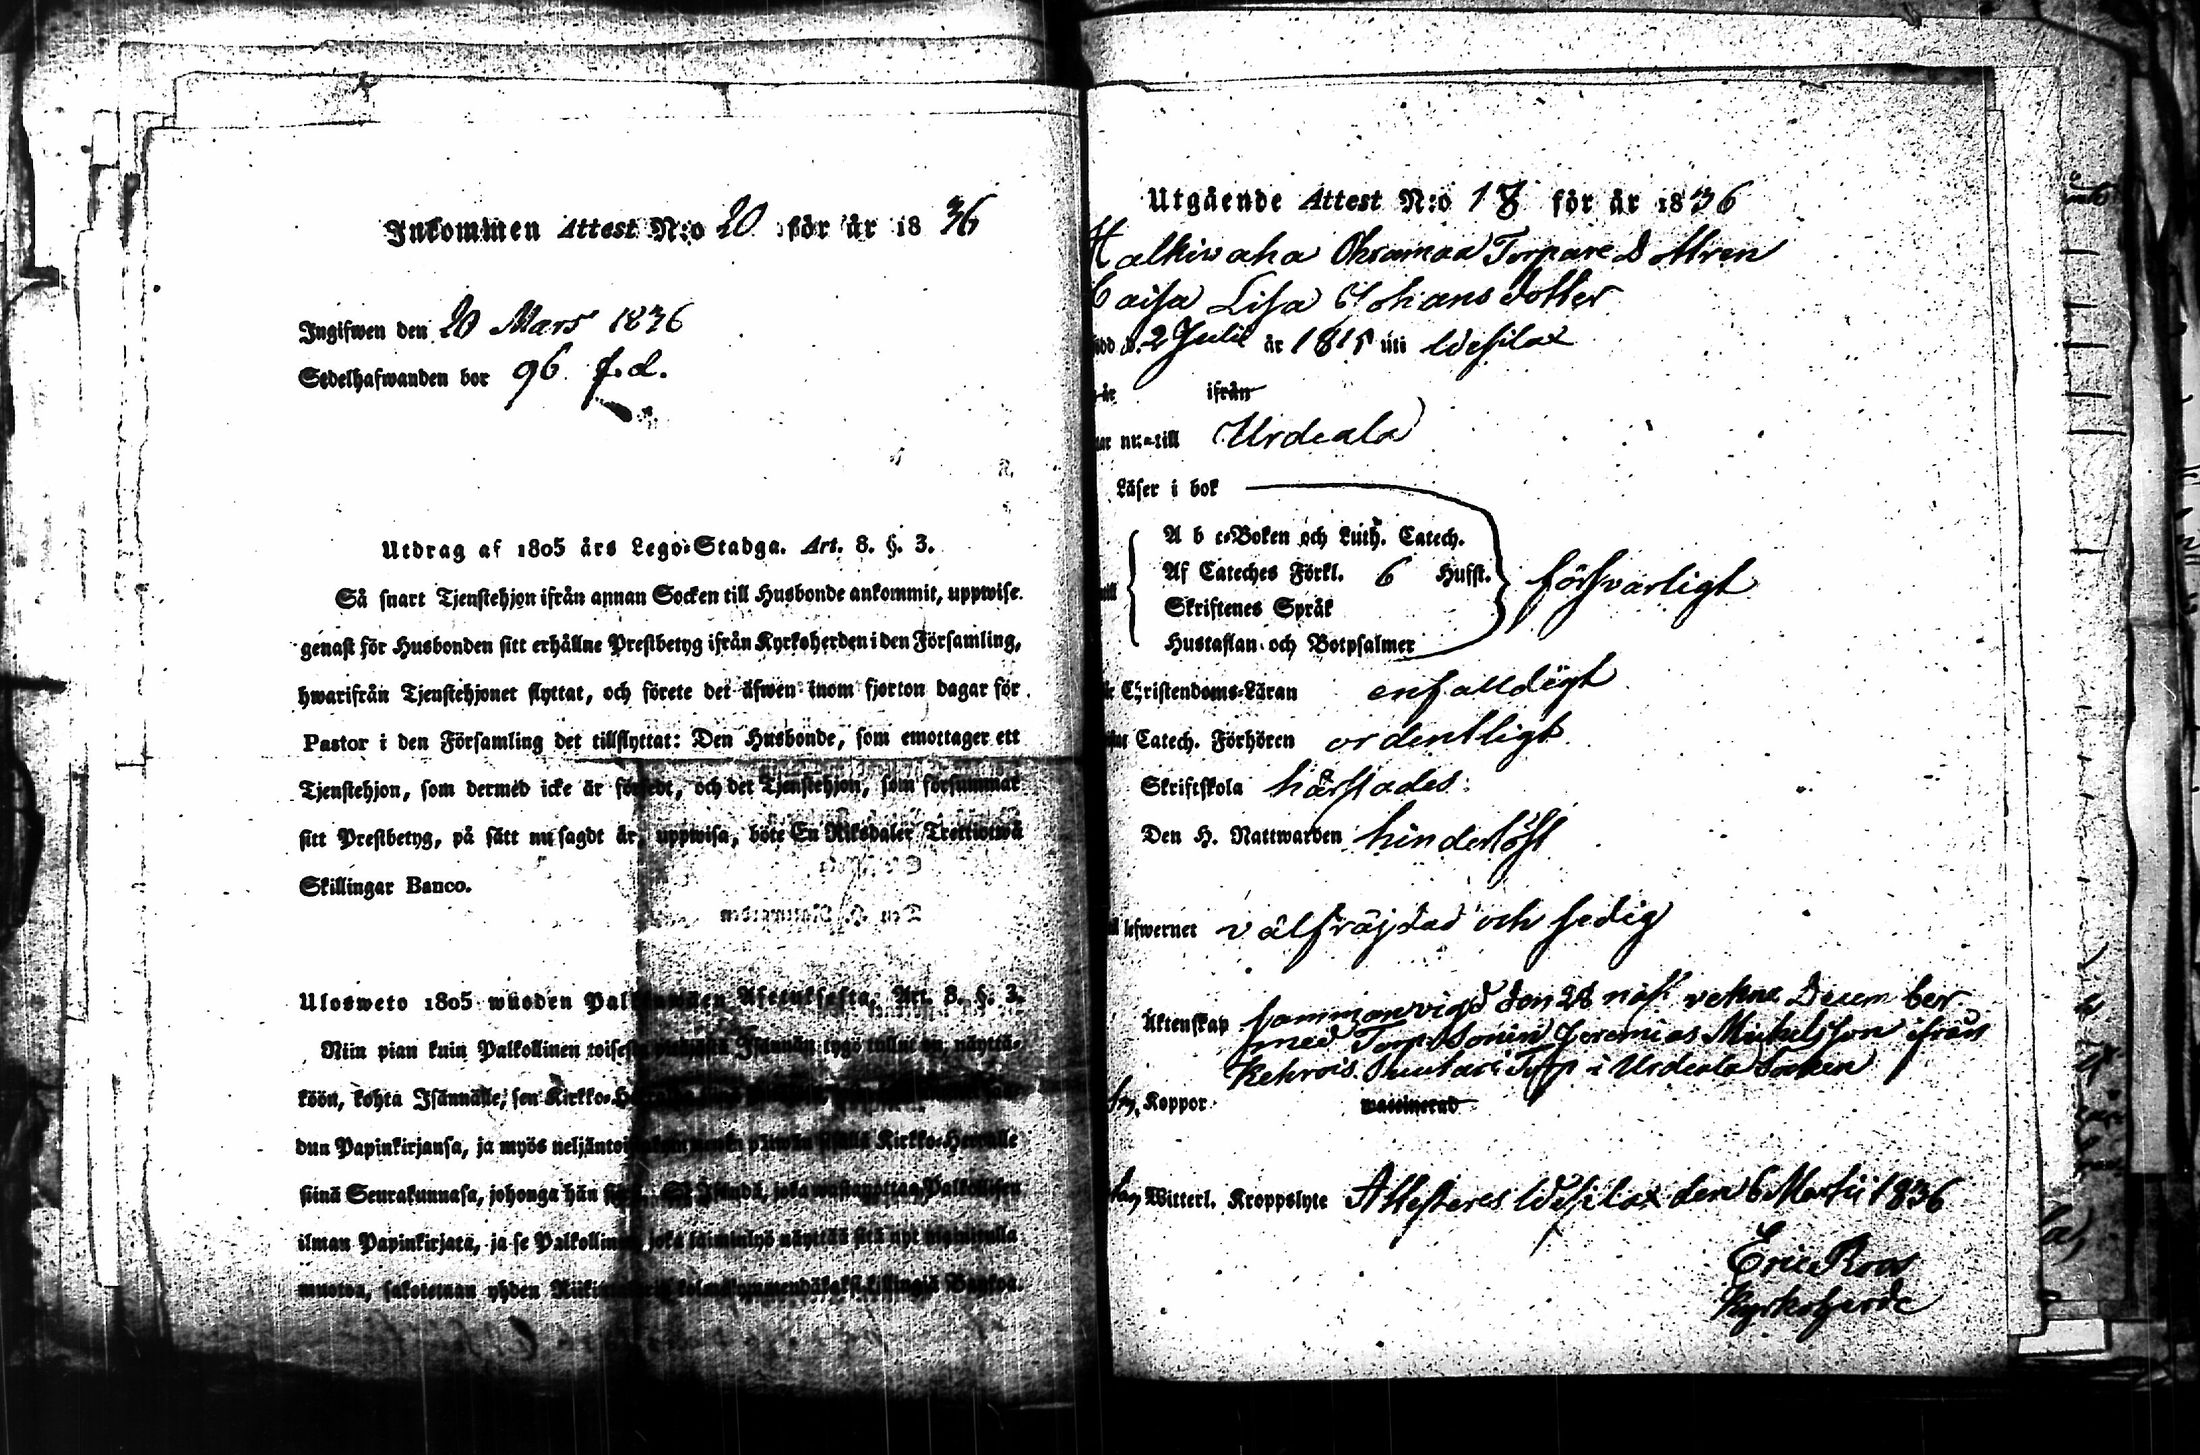 Inkommen Attest N:o 20 för år 1836
Ingifwen den 20 Mars 1836
Sedelhafwanden bor 96 f.d.
Utdrag af 1805 års Lego-Stadga. Art. 8. §. 3.
Så snart Tjenstehjon ifrån annan Socken till Husbonde ankommit, uppwise
genast för Husbonden sitt erhållne Prestbetyg ifrån Kyrkoherden i den Församling,
hwarifrån Tjenstehjonet flyttat, och förete det äfwen inom fjorton dagar för
Pastor i den Församling det tillflyttat: Den Husbonde, som emottager ett
Tjenstehjon, som dermed icke är försedt, och det Tjenstehjon, som försummar
sitt Prestbetyg, på sätt nu sagdt är, uppwisa, böte En Riksdaler Trettiotwå
Skillingar Banco.
Ulosweto 1805 wuoden Asetuksesta, Art. 8. §. 3.
Niin pian kuin Palkollinen toisesta Isännän tygö tullut on, näyttä-
köön, kohta Isännälle, sen Kirkko-
dun Papinkirjansa, ja myös Kirkko-Herralle
siinä Seurakunnasa, johonga hän Palkollisen
ilman Papinkirjata, ja se Palkollinen joka laiminlyö näyttää sitä nyt mainitulla
muotoa, sakotetaan yhden kolmekymmendäkaksi killingiä Bankoa.
Utgående Attest N:o 18 för år 1836
Halkiwaha Oksamaa Torpare Dottren
Caisa Lisa Johansdotter
d. 2 Julii år 1815 uti Wesilax
år ifrån
nu till Urdiala
Läser i bok
A b c-Boken och Luth. Catech.
Af Cateches Förkl. 6 Hufst. försvarligt
Skriftenes Språk
Hustaflan och Botpsalmer
Christendoms-Läran enfalldigt
Catech. Förhören ordentligt
Skriftskola härstades
Den H. Nattwarden hinderlöst
lefwernet välfräjdad och sedig
Äktenskap sammanvigd den 28 December
med Torp. Sonen Jeremias Mickelsson ifrån
Torp i Urdiala Socken
Koppor waccinerad
Witterl. Kroppslyte Attesteras Wesilax den 6 Martii 1836
Eric Roos
Kyrkoherde